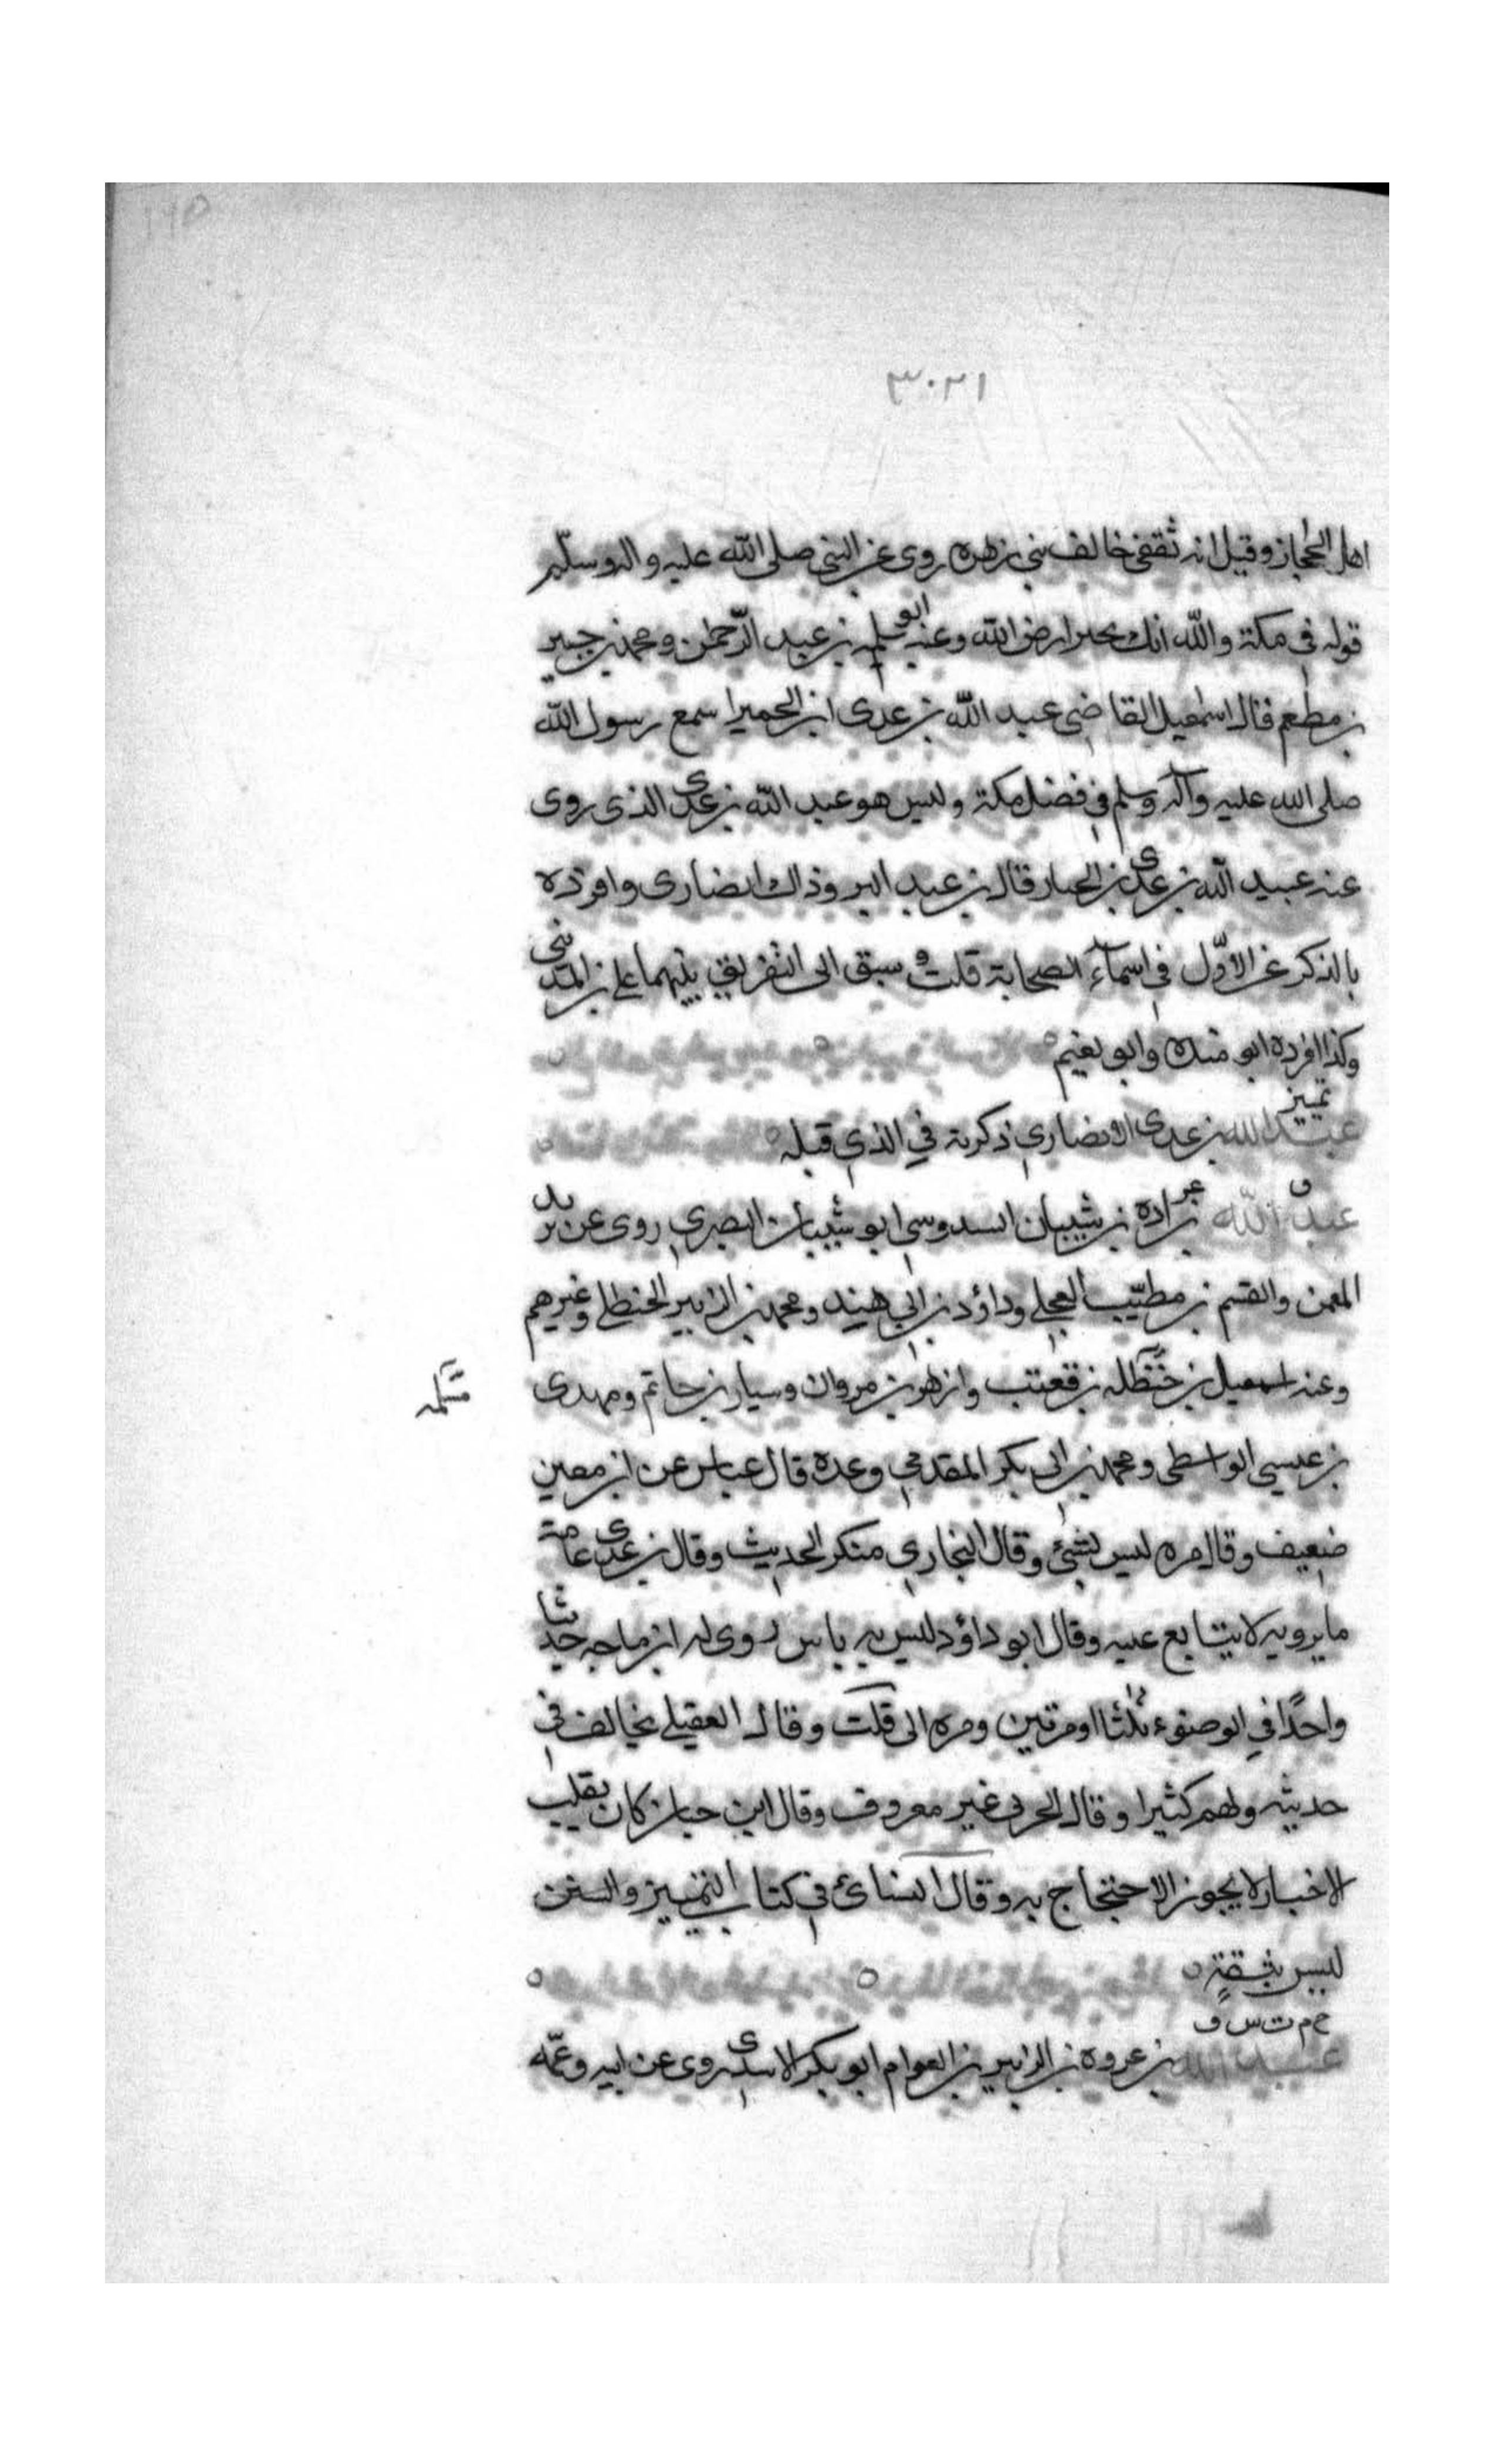 ١٩٥
٣٠٢١
اهل الحجاز وقيل انه ثقفى خالف بنى زهره روى عن النبى صلى الله عليه واله وسلم
قوله فى مكة والله انك لخير ارض الله وعنه ابو سلمه بن عبد الرحمن ومحمد بن جبير
بن مطعم قال اسمعيل القاضى عبد الله بن عدى ابن الحميرا سمع رسول الله
صلى الله عليه وآله وسلم فى فضل مكة وليس هو عبد الله بن عدى الذى روى
عنه عبيد الله بن عدى بن الخيار قال بن عبد البر وذاك انصارى وافرده
بالذكر عن الاول فى اسماء الصحابة قلت وسبق الى التفريق بينهما على بن المدينى
وكذا افرده ابو منده وابو نعيم
تمييز
عبد الله بن عدى الانصارى ذكرته في الذي قبله
ق
عبد الله بن عراده بن شيبان السدوسى ابو شيبان البصرى روى عن
والقسم بن مطيب العجلى وداؤد بن ابى هند ومحمد بن الزبير الحنظلى وغيرهم
وعنه اسمعيل بن قعنب وازهر بن مروان وسيار بن حاتم ومهدى
مسلمه
بن عيسى الواسطى ومحمد بن ابى بكر المقدمى وعده قال عباس عن ابن معين
ضعيف وقال مره ليس بشئ وقال البخارى منكر الحديث وقال بن عدى عامة
ما يرويه لا يتابع عليه وقال ابو داؤد ليس به باس روى له ابن ماجه حديثا
واحدًا في الوضوء ثلثا او مرتين ومره الى قلت وقال العقيلى يخالف فى
حديثه ولهم كثيرا وقال الحربى غير معروف وقال ابن حبان كان يقلب
الاخبار لا يجوز الاحتجاج به وقال النسائ فى كتاب التمييز والسنن
ليس بثقةٍ
خ م ت س ق
عبد الله بن عروه بن الزبير بن العوام ابو بكر الاسدى روى عن ابيه وعمه